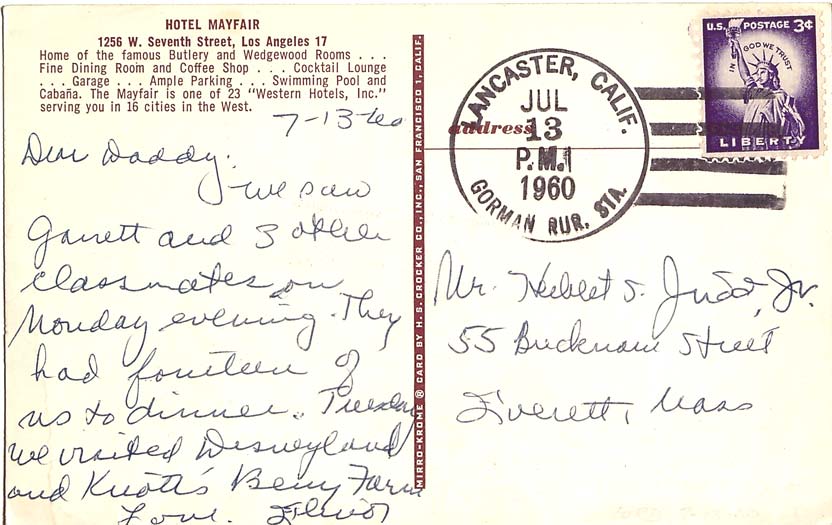 HOTEL MAYFAIR
1256 W. Seventh Street, Los Angeles 17
Home of the famous Butlery and Wedgewood Rooms . . .
Fine Dining Room and Coffee Shop . . . Cocktail Lounge
. . . Garage . . . Ample Parking . . . Swimming Pool and
Cabaña. The Mayfair is one of 23 "Western Hotels, Inc."
serving you in 16 cities in the West.
7-13-60
Dear Daddy.
We saw
Garrett and 3 other
classmates on
Monday evening. They
had fourteen of
us to dinner. Tuesday
we visited Disneyland
and Knott's Berry Farm
Love.
MIRRO-KROME ® CARD BY H. S. CROCKER CO., INC., SAN FRANCISCO 1, CALIF.
address
LANCASTER, CALIF.
JUL
13
P.M.
1960
GORMAN RUR. STA.
U.S. POSTAGE 3¢
IN GOD WE TRUST
LIBERTY
Mr. Herbert S. Judd, Jr.
55 Bucknam Street
Everett, Mass